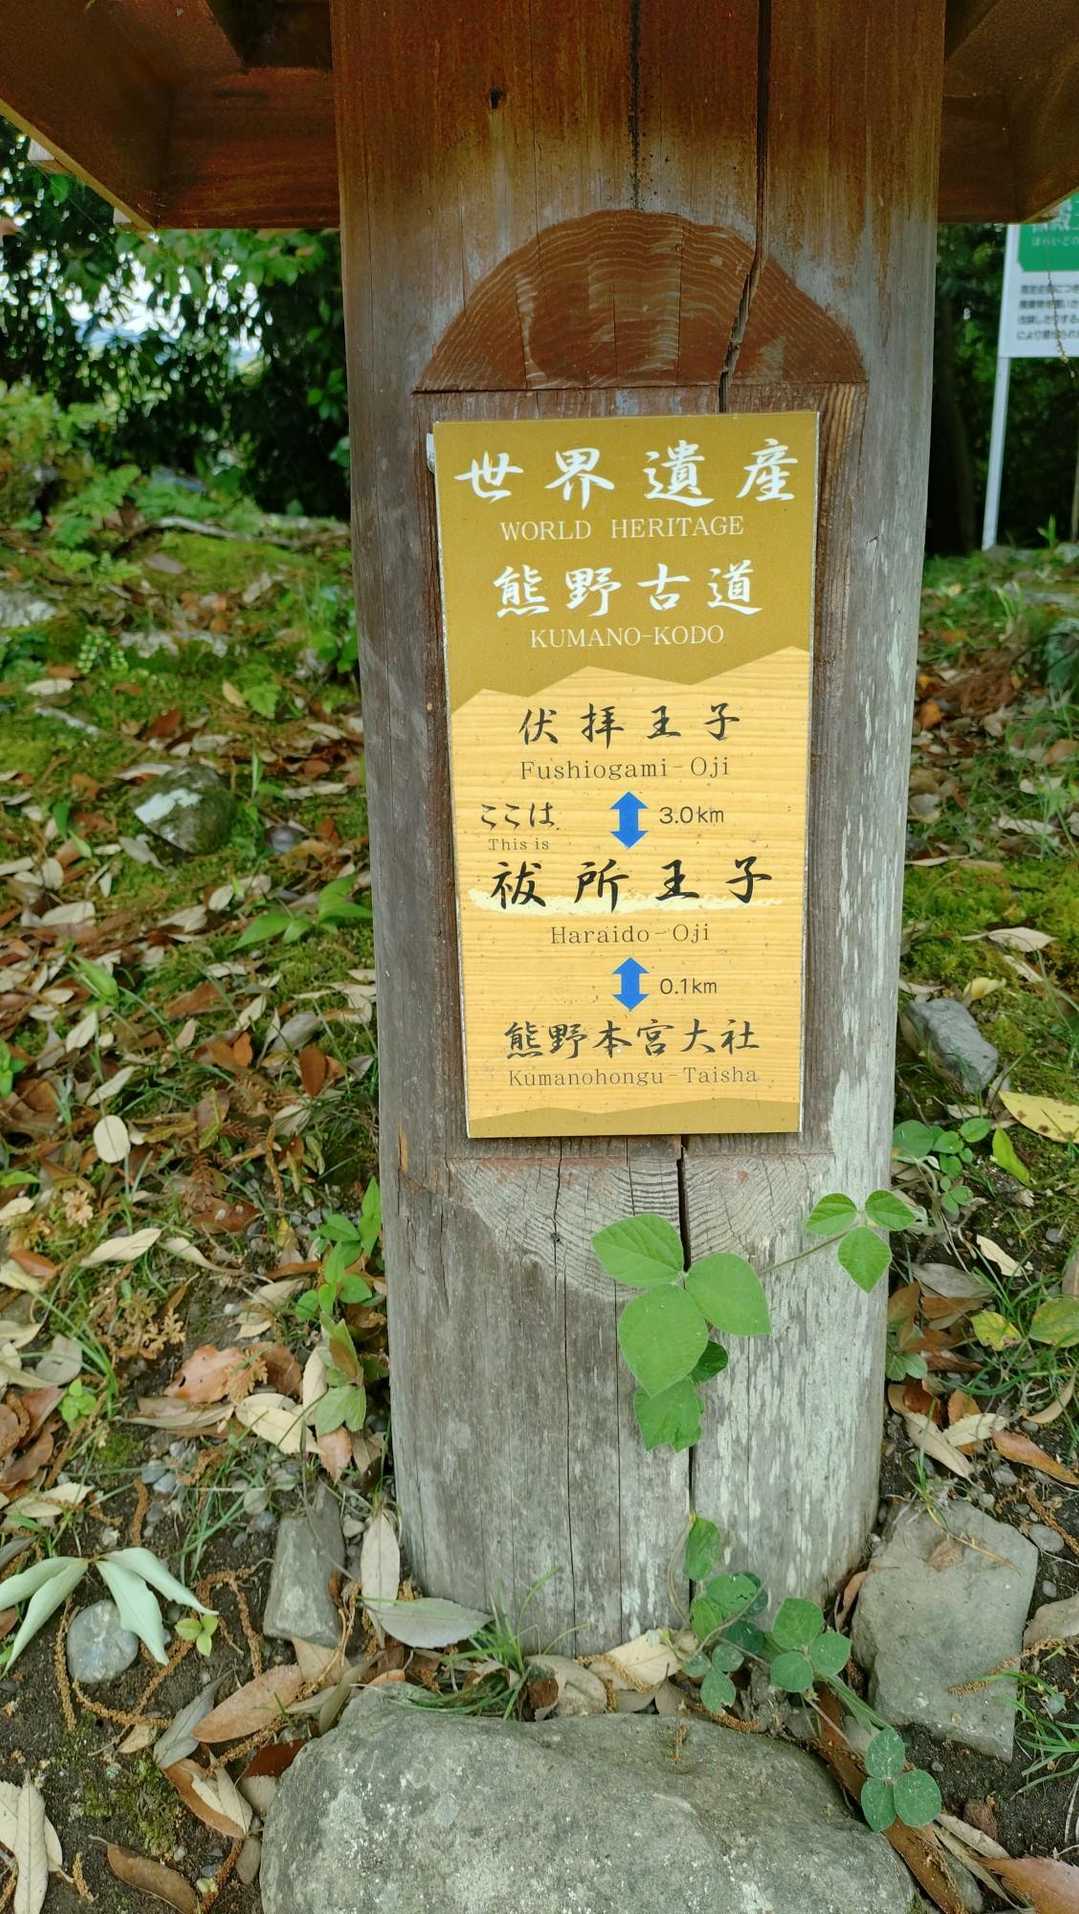 世界遺産
WORLD HERITAGE
熊野古道
KUMANO-KODO
伏拝王子
Fushiogami-Oji
ここは
3.0km
This is
祓所王子
Haraido-Oji
0.1km
熊野本宮大社
Kumanohongu-Taisha